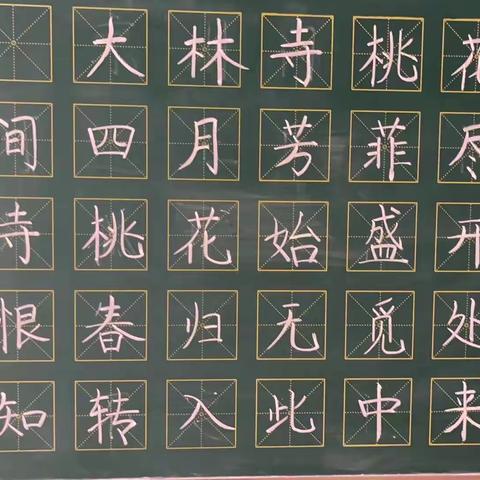 大林寺桃花
间四月芳菲尽
寺桃花始盛开
恨春归无觅处
知转入此中来